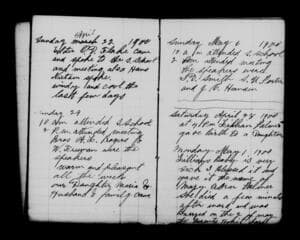 April
Sunday march 22, 1900
Elder O. P. Flake came
and spoke to the S. School
and meeting also Hans
Hansen spoke.
windy and cool the
last few days
Sunday 29
10 A.m attended S. School
2 P.m attended meeting
Bros A. Z. Rogers
W. Freeman were the
speakers
warm and pleasant
all the week
our Daughter Maria &
Husband & family came
Sunday May 6 1900
10 a.m attended S. School
2 P.m attended meeting
the speakers were
J. D. Smith S. U. Porter
and J. C. Hansen
Saturday April 28 1900
gave birth to a Daughter
Monday May 1, 1900
baby is very
sick I blessed it and
gave it the name of
Mary
she died a few minutes
after and was
buried on the 2 of may